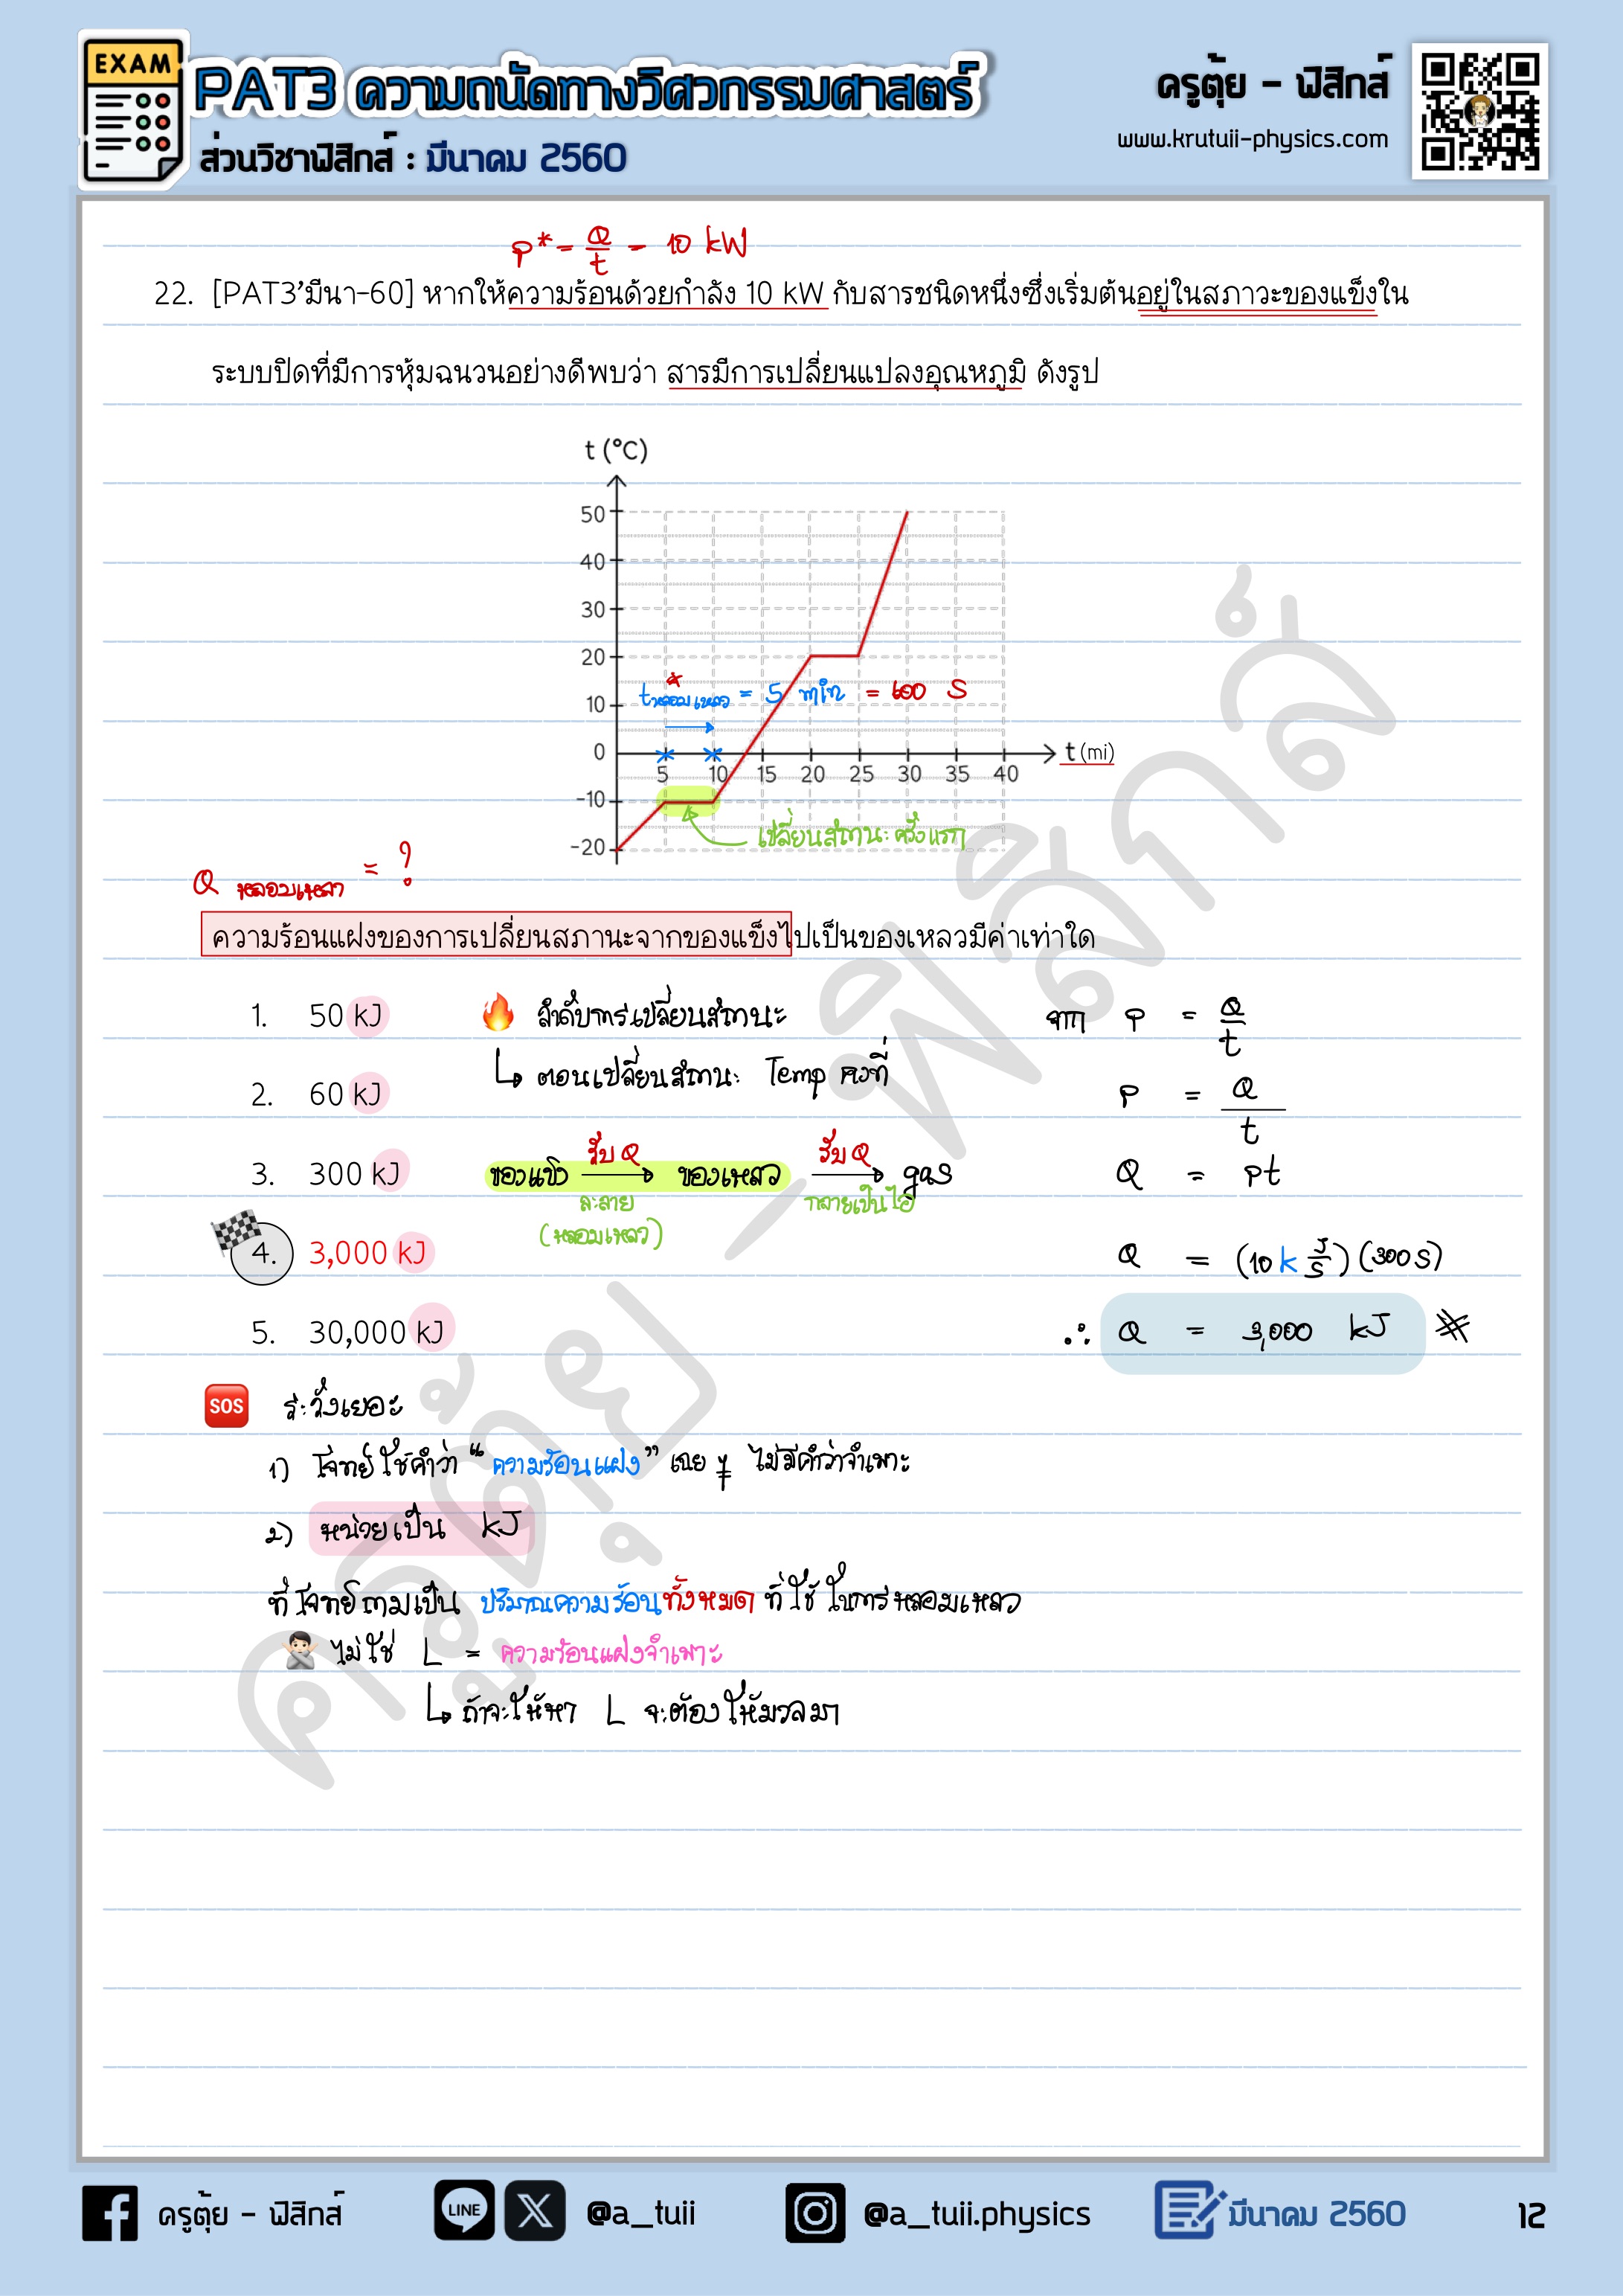 EXAM
PAT3 ความถนัดทางวิศวกรรมศาสตร์
ส่วนวิชาฟิสิกส์ : มีนาคม 2560
ครูตุ้ย - ฟิสิกส์
www.krutuii-physics.com
P* = Q/t = 10 kW
22. [PAT3'มีนา-60] หากให้ความร้อนด้วยกำลัง 10 kW กับสารชนิดหนึ่งซึ่งเริ่มต้นอยู่ในสภาวะของแข็งใน
ระบบปิดที่มีการหุ้มฉนวนอย่างดีพบว่า สารมีการเปลี่ยนแปลงอุณหภูมิ ดังรูป
t (°C)
50
40
30
20
t*หลอมเหลว = 5 min = 600 S
10
0
t (mi)
5 10 15 20 25 30 35 40
-10
เปลี่ยนสถานะครั้งแรก
-20
Q หลอมเหลว = ?
ความร้อนแฝงของการเปลี่ยนสภานะจากของแข็งไปเป็นของเหลวมีค่าเท่าใด
1. 50 kJ
2. 60 kJ
3. 300 kJ
4. 3,000 kJ
5. 30,000 kJ
ลำดับการเปลี่ยนสถานะ
ตอนเปลี่ยนสถานะ Temp คงที่
รับ Q รับ Q
ของแข็ง → ของเหลว → gas
ละลาย กลายเป็นไอ
(หลอมเหลว)
จาก P = Q/t
P = Q/t
Q = Pt
Q = (10 k J/S) (300 S)
∴ Q = 3,000 kJ
SOS ระวังเยอะ
1) โจทย์ใช้คำว่า "ความร้อนแฝง" เฉย ๆ ไม่มีคำว่าจำเพาะ
2) หน่วยเป็น kJ
ที่โจทย์ถามเป็น ปริมาณความร้อนทั้งหมด ที่ใช้ในการหลอมเหลว
ไม่ใช่ L = ความร้อนแฝงจำเพาะ
ถ้าจะให้หา L จะต้องให้มวลมา
ครูตุ้ย - ฟิสิกส์
ครูตุ้ย - ฟิสิกส์
LINE
@a_tuii
@a_tuii.physics
มีนาคม 2560
12